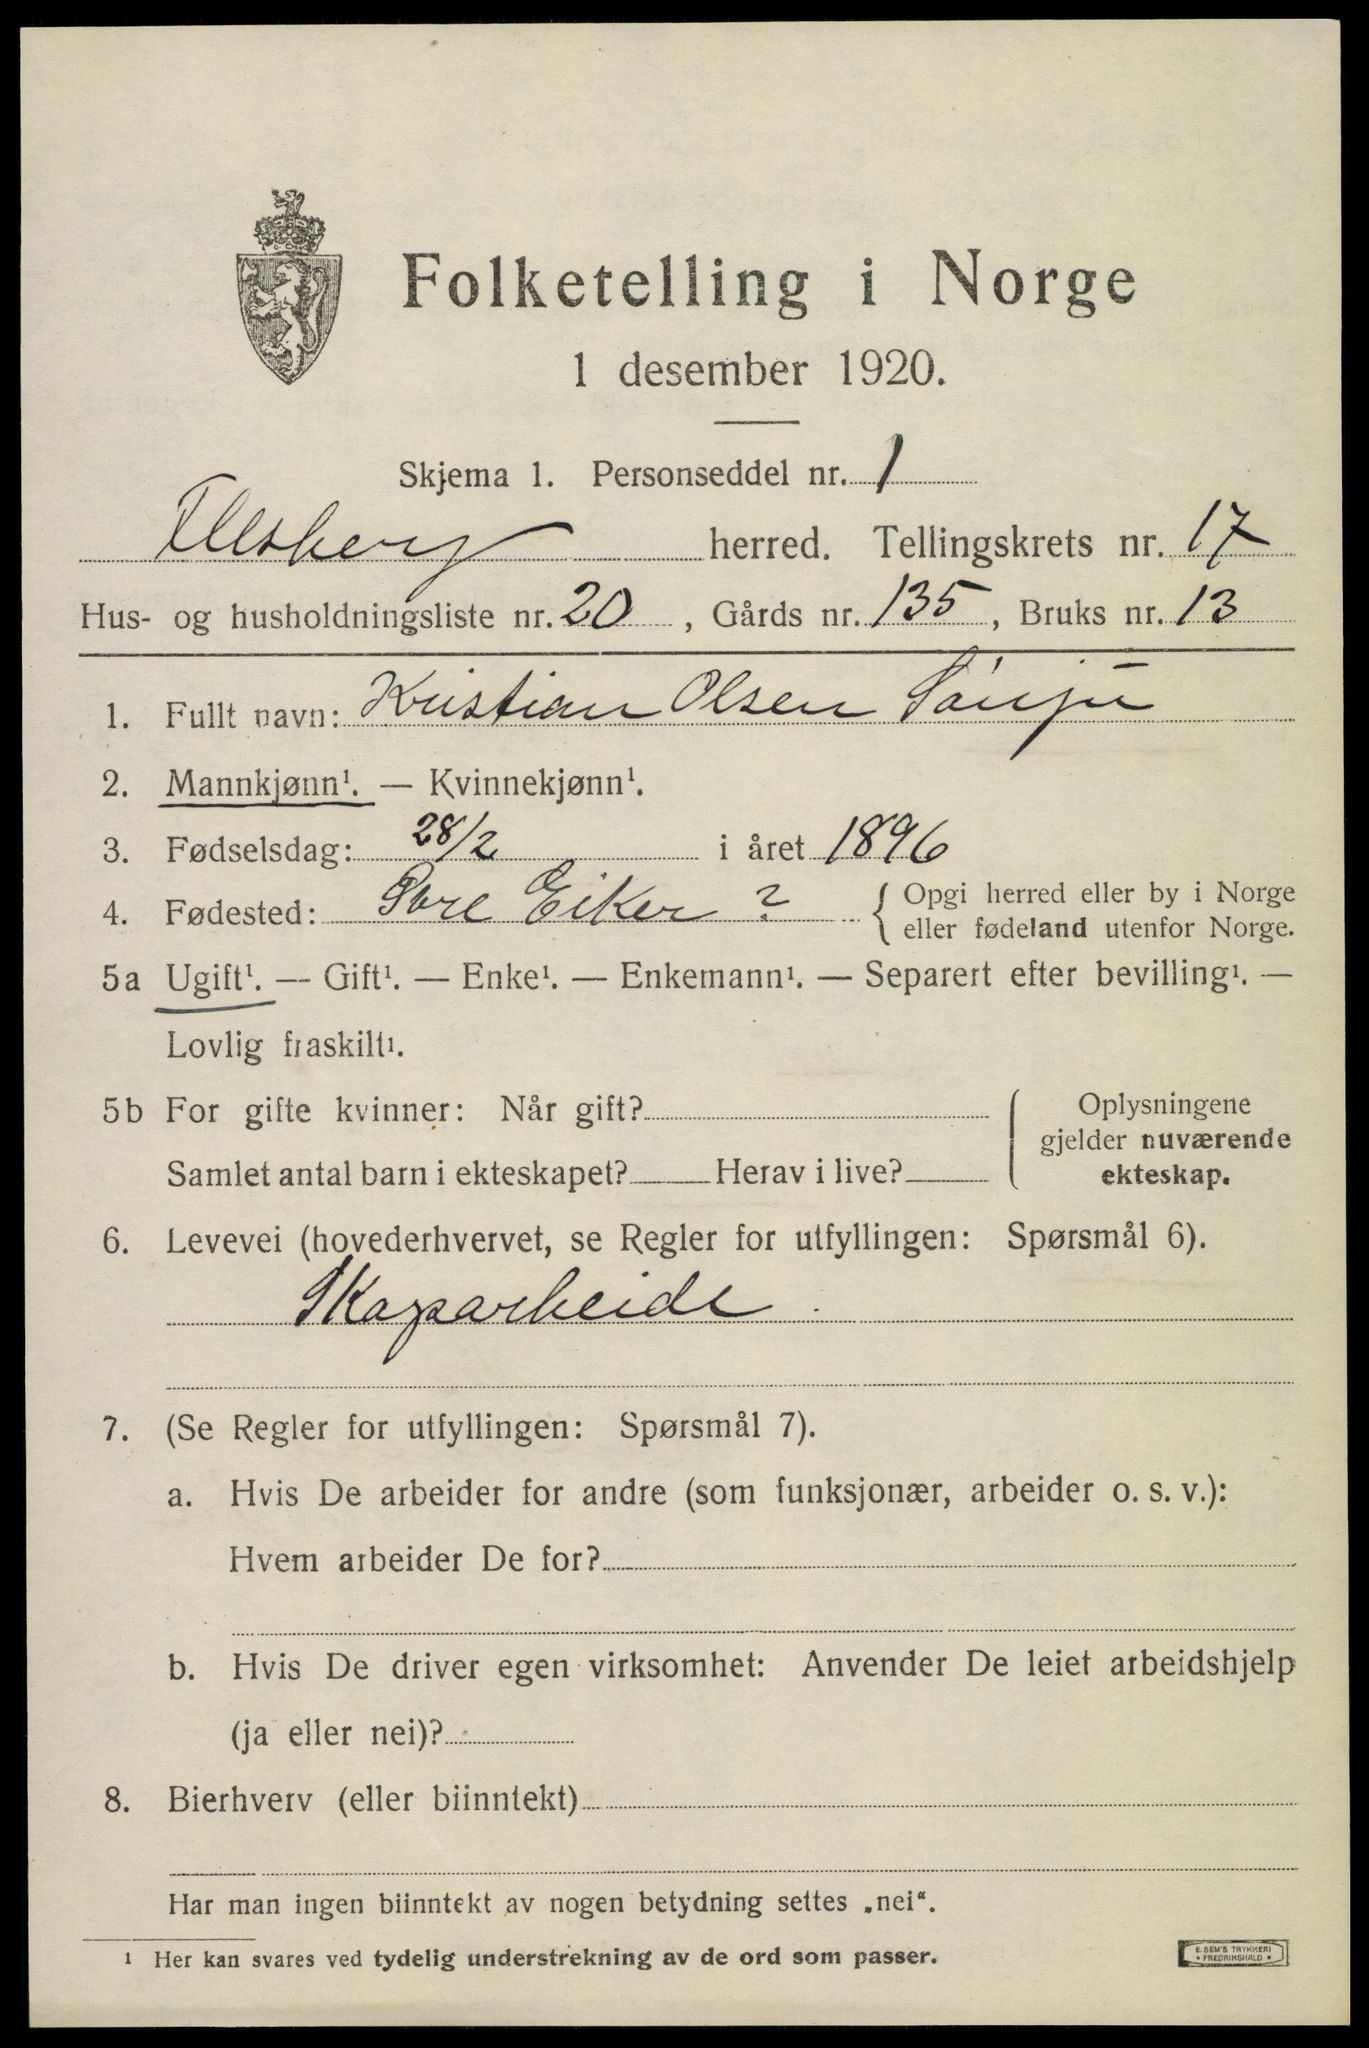 Folketelling i Norge
1 desember 1920.
Skjema 1. Personseddel nr. 1
Flesberg herred. Tellingskrets nr. 17
Hus- og husholdningsliste nr. 20, Gårds nr. 135, Bruks nr. 13
1. Fullt navn: Kristian Olsen
2. Mannkjønn¹. — Kvinnekjønn¹.
3. Fødselsdag: 28/2 i året 1896
4. Fødested: Øvre Eiker ? { Opgi herred eller by i Norge
eller fødeland utenfor Norge.
5a Ugift¹. — Gift¹. — Enke¹. — Enkemann¹. — Separert efter bevilling¹. —
Lovlig fraskilt¹.
5b For gifte kvinner: Når gift?
Samlet antal barn i ekteskapet? Herav i live?
Oplysningene
gjelder nuværende
ekteskap.
6. Levevei (hovederhvervet, se Regler for utfyllingen: Spørsmål 6).
Skogsarbeide.
7. (Se Regler for utfyllingen: Spørsmål 7).
a. Hvis De arbeider for andre (som funksjonær, arbeider o. s. v.):
Hvem arbeider De for?
b. Hvis De driver egen virksomhet: Anvender De leiet arbeidshjelp
(ja eller nei)?
8. Bierhverv (eller biinntekt)
Har man ingen biinntekt av nogen betydning settes „nei“.
¹ Her kan svares ved tydelig understrekning av de ord som passer.
E. SEM'S TRYKKERI
• FREDRIKSHALD •